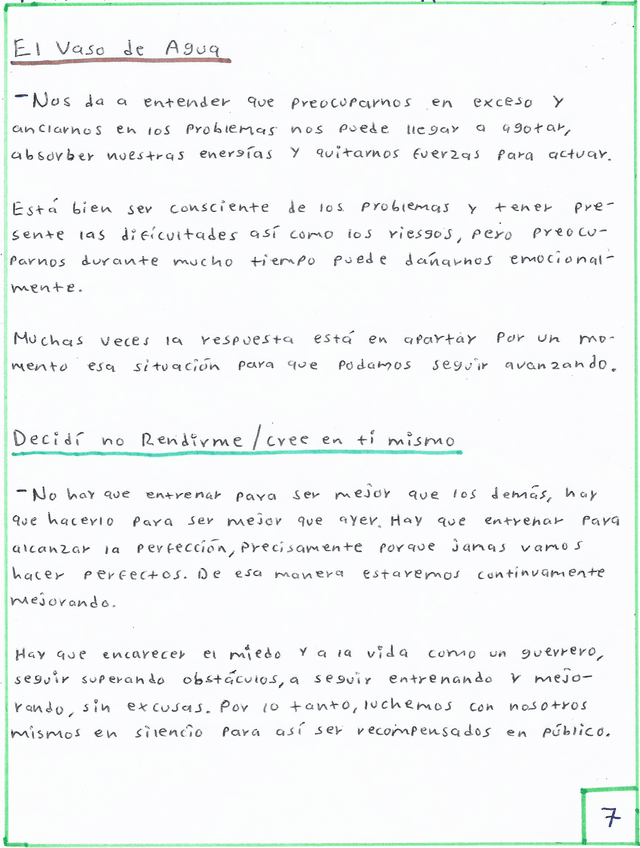 El Vaso de Agua
-Nos da a entender que preocuparnos en exceso y
anclarnos en los problemas nos puede llegar a agotar,
absorber nuestras energías y quitarnos fuerzas para actuar.
Está bien ser consciente de los problemas y tener pre-
sente las dificultades así como los riesgos, pero preocu-
parnos durante mucho tiempo puede dañarnos emocional-
mente.
Muchas veces la respuesta está en apartar por un mo-
mento esa situación para que podamos seguir avanzando.
Decidí no Rendirme / cree en ti mismo
-No hay que entrenar para ser mejor que los demás, hay
que hacerlo para ser mejor que ayer. Hay que entrenar para
alcanzar la perfección, precisamente porque jamas vamos
hacer perfectos. De esa manera estaremos continuamente
mejorando.
Hay que encarecer el miedo y a la vida como un guerrero,
seguir superando obstáculos, a seguir entrenando y mejo-
rando, sin excusas. Por lo tanto, luchemos con nosotros
mismos en silencio para así ser recompensados en público.
7